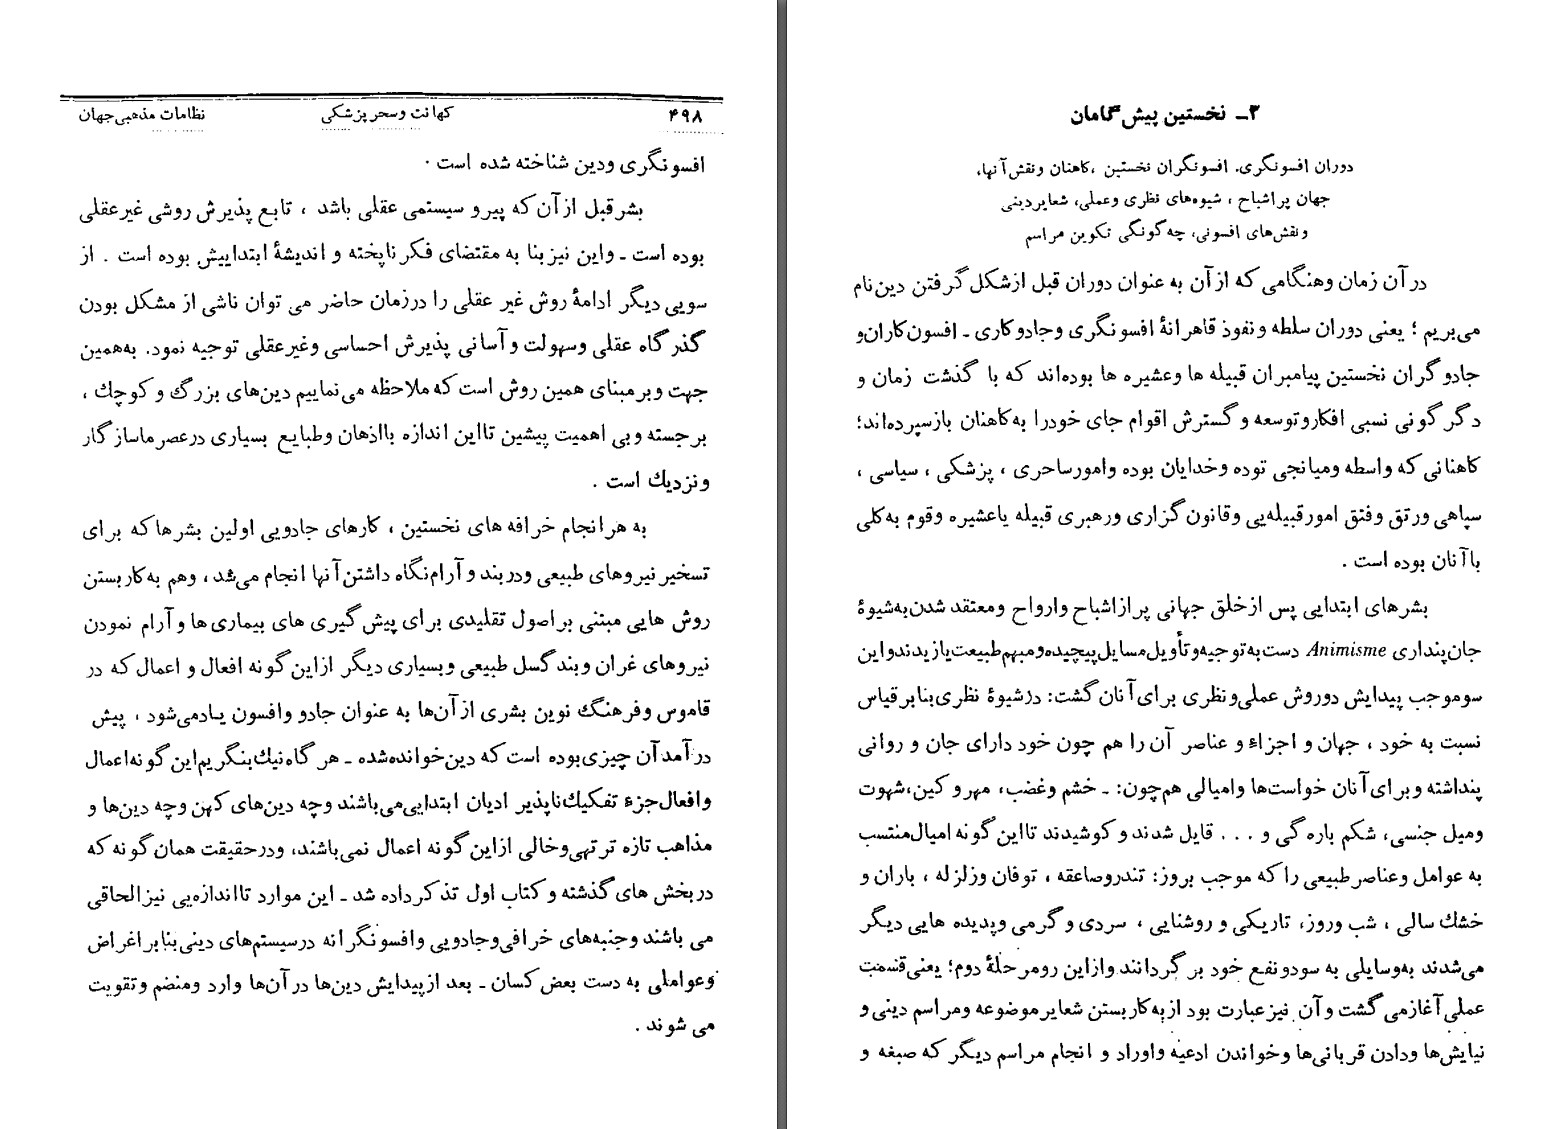 ۳ـ نخستین پیش‌گامان
دوران افسونگری. افسونگران نخستین ،کاهنان و نقش آنها،
جهان پراشباح ، شیوه‌های نظری وعملی، شعایردینی
و نقش‌های افسونی، چه‌گونگی تکوین مراسم
درآن زمان وهنگامی که ازآن به عنوان دوران قبل ازشکل گرفتن دین‌نام
می‌بریم ؛ یعنی دوران سلطه و نفوذ قاهرانهٔ افسونگری وجادوکاری ـ افسون‌کاران‌و
جادوگران نخستین پیامبران قبیله ها وعشیره ها بوده‌اند که با گذشت زمان و
دگرگونی نسبی افکاروتوسعه وگسترش اقوام جای خودرا به‌کاهنان بازسپرده‌اند؛
کاهنانی که واسطه ومیانجی توده وخدایان بوده وامورساحری ، پزشکی ، سیاسی ،
سپاهی ورتق وفتق امورقبیله‌یی وقانون‌گزاری ورهبری قبیله یاعشیره وقوم به‌کلی
باآنان بوده است .
بشرهای ابتدایی پس ازخلق جهانی پرازاشباح وارواح ومعتقد شدن‌به‌شیوهٔ
جان‌پنداری Animisme دست‌به‌توجیه‌وتأویل‌مسایل‌پیچیده‌ومبهم‌طبیعت‌یازیدندواین
سوموجب پیدایش دوروش عملی‌ونظری برای‌آنان گشت: درشیوهٔ نظری‌بنابرقیاس
نسبت به خود ، جهان و اجزاء و عناصر آن را هم چون خود دارای جان و روانی
پنداشته وبرای‌آنان خواست‌ها وامیالی هم‌چون: ـ خشم وغضب، مهرو کین،شهوت
ومیل جنسی، شکم باره گی و . . . قایل شدند و کوشیدند تااین گونه امیال‌منتسب
به عوامل وعناصرطبیعی راکه موجب بروز: تندروصاعقه ، توفان وزلزله ، باران و
خشك سالی ، شب وروز، تاریکی و روشنایی ، سردی و گرمی وپدیده هایی دیگر
می‌شدند به‌وسایلی به سودونفع خود بر گردانند وازاین رومرحلهٔ دوم؛ یعنی‌قسمت
عملی‌آغازمی گشت وآن نیزعبارت بود ازبه‌کاربستن شعایرموضوعه ومراسم دینی و
نیایش‌ها ودادن قربانی‌ها وخواندن ادعیه واوراد و انجام مراسم دیگر که صبغه و
۴۹۸ کهانت وسحرپزشکی نظامات مذهبی‌جهان
افسونگری ودین شناخته شده است .
بشرقبل ازآن‌که پیرو سیستمی عقلی باشد ، تابع پذیرش روشی غیرعقلی
بوده است ـ واین نیزبنا به مقتضای فکرناپخته و اندیشهٔ ابتداییش بوده است . از
سویی دیگر ادامهٔ روش غیر عقلی را درزمان حاضر می توان ناشی از مشکل بودن
گذرگاه عقلی وسهولت و آسانی پذیرش احساسی وغیرعقلی توجیه نمود. به‌همین
جهت وبرمبنای همین روش است‌که ملاحظه می‌نماییم دین‌های بزرگ و کوچك ،
برجسته وبی اهمیت پیشین تااین اندازه بااذهان وطبایع بسیاری درعصرماسازگار
ونزدیك است .
به هرانجام خرافه های نخستین ، کارهای جادویی اولین بشرهاکه برای
تسخیر نیروهای طبیعی ودربند و آرام‌نگاه داشتن‌آنها انجام می‌شد ، وهم به‌کاربستن
روش هایی مبتنی براصول تقلیدی برای پیش گیری های بیماری‌ها و آرام نمودن
نیروهای غران و بندگسل طبیعی وبسیاری دیگر ازاین‌گونه افعال و اعمال که در
قاموس وفرهنگ نوین بشری ازآن‌ها به عنوان جادو وافسون یادمی‌شود ، پیش
درآمدآن چیزی‌بوده است که دین‌خوانده‌شده ـ هر گاه‌نیك‌بنگریم‌این گونه‌اعمال
وافعال‌جزء تفکیك‌ناپذیر ادیان ابتدایی‌می‌باشند وچه دین‌های کهن وچه دین‌ها و
مذاهب تازه ترتهی‌وخالی ازاین گونه اعمال نمی‌باشند، ودرحقیقت همان گونه که
دربخش های گذشته و کتاب اول تذکرداده شد ـ این موارد تااندازه‌یی نیزالحاقی
می باشند وجنبه‌های خرافی‌وجادویی وافسونگرانه درسیستم‌های دینی‌بنابراغراض
وعواملی به دست بعض کسان ـ بعد ازپیدایش دین‌ها درآن‌ها وارد ومنضم وتقویت
می شوند .